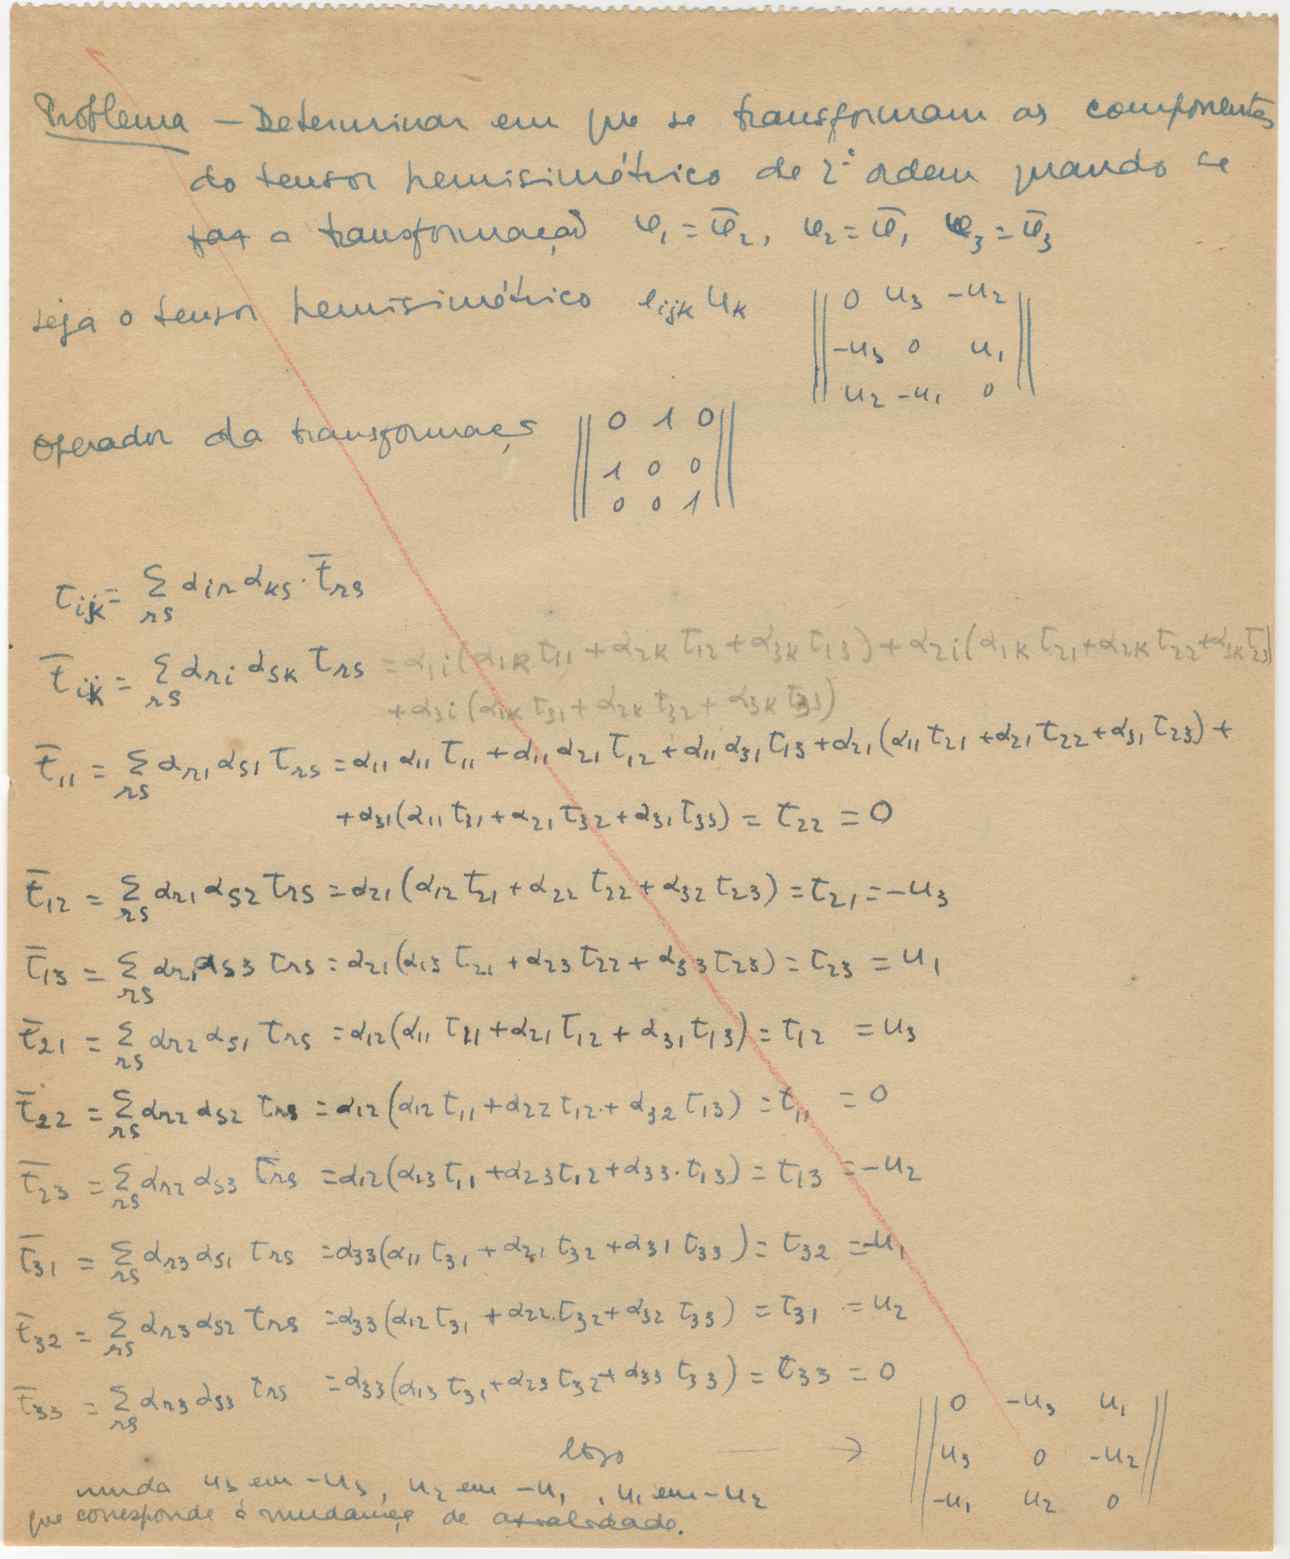 Problema — Determinar em que se transformam as componentes
do tensor hemisimétrico de 2ª ordem quando se
faz a transformação φ₁ = φ̄₂, φ₂ = φ̄₁ φ₃ = φ̄₃
seja o tensor hemisimétrico e_ijk u_k
‖ 0 u₃ -u₂
-u₃ 0 u₁
u₂ -u₁ 0 ‖
Operador da transformação
‖ 0 1 0
1 0 0
0 0 1 ‖
t_ik = Σ_rs α_ir α_ks · t̄_rs
t̄_ik = Σ_rs α_ri α_sk t_rs = α₁i(α₁k t₁₁ + α₂k t₁₂ + α₃k t₁₃) + α₂i(α₁k t₂₁ + α₂k t₂₂ + α₃k t₂₃)
+ α₃i(α₁k t₃₁ + α₂k t₃₂ + α₃k t₃₃)
t̄₁₁ = Σ_rs α_r₁ α_s₁ t_rs = α₁₁ α₁₁ t₁₁ + α₁₁ α₂₁ t₁₂ + α₁₁ α₃₁ t₁₃ + α₂₁(α₁₁ t₂₁ + α₂₁ t₂₂ + α₃₁ t₂₃) +
+ α₃₁(α₁₁ t₃₁ + α₂₁ t₃₂ + α₃₁ t₃₃) = t₂₂ = 0
t̄₁₂ = Σ_rs α_r₁ α_s₂ t_rs = α₂₁(α₁₂ t₂₁ + α₂₂ t₂₂ + α₃₂ t₂₃) = t₂₁ = -u₃
t̄₁₃ = Σ_rs α_r₁ α_s₃ t_rs = α₂₁(α₁₃ t₂₁ + α₂₃ t₂₂ + α₃₃ t₂₃) = t₂₃ = u₁
t̄₂₁ = Σ_rs α_r₂ α_s₁ t_rs = α₁₂(α₁₁ t₁₁ + α₂₁ t₁₂ + α₃₁ t₁₃) = t₁₂ = u₃
t̄₂₂ = Σ_rs α_r₂ α_s₂ t_rs = α₁₂(α₁₂ t₁₁ + α₂₂ t₁₂ + α₃₂ t₁₃) = t₁₁ = 0
t̄₂₃ = Σ_rs α_r₂ α_s₃ t_rs = α₁₂(α₁₃ t₁₁ + α₂₃ t₁₂ + α₃₃ · t₁₃) = t₁₃ = -u₂
t̄₃₁ = Σ_rs α_r₃ α_s₁ t_rs = α₃₃(α₁₁ t₃₁ + α₂₁ t₃₂ + α₃₁ t₃₃) = t₃₂ = -u₁
t̄₃₂ = Σ_rs α_r₃ α_s₂ t_rs = α₃₃(α₁₂ t₃₁ + α₂₂ t₃₂ + α₃₂ t₃₃) = t₃₁ = u₂
t̄₃₃ = Σ_rs α_r₃ α_s₃ t_rs = α₃₃(α₁₃ t₃₁ + α₂₃ t₃₂ + α₃₃ t₃₃) = t₃₃ = 0
logo →
‖ 0 -u₃ u₁
u₃ 0 -u₂
-u₁ u₂ 0 ‖
muda u₃ em -u₃, u₂ em -u₁, u₁ em -u₂
que corresponde à mudança de axialidade.